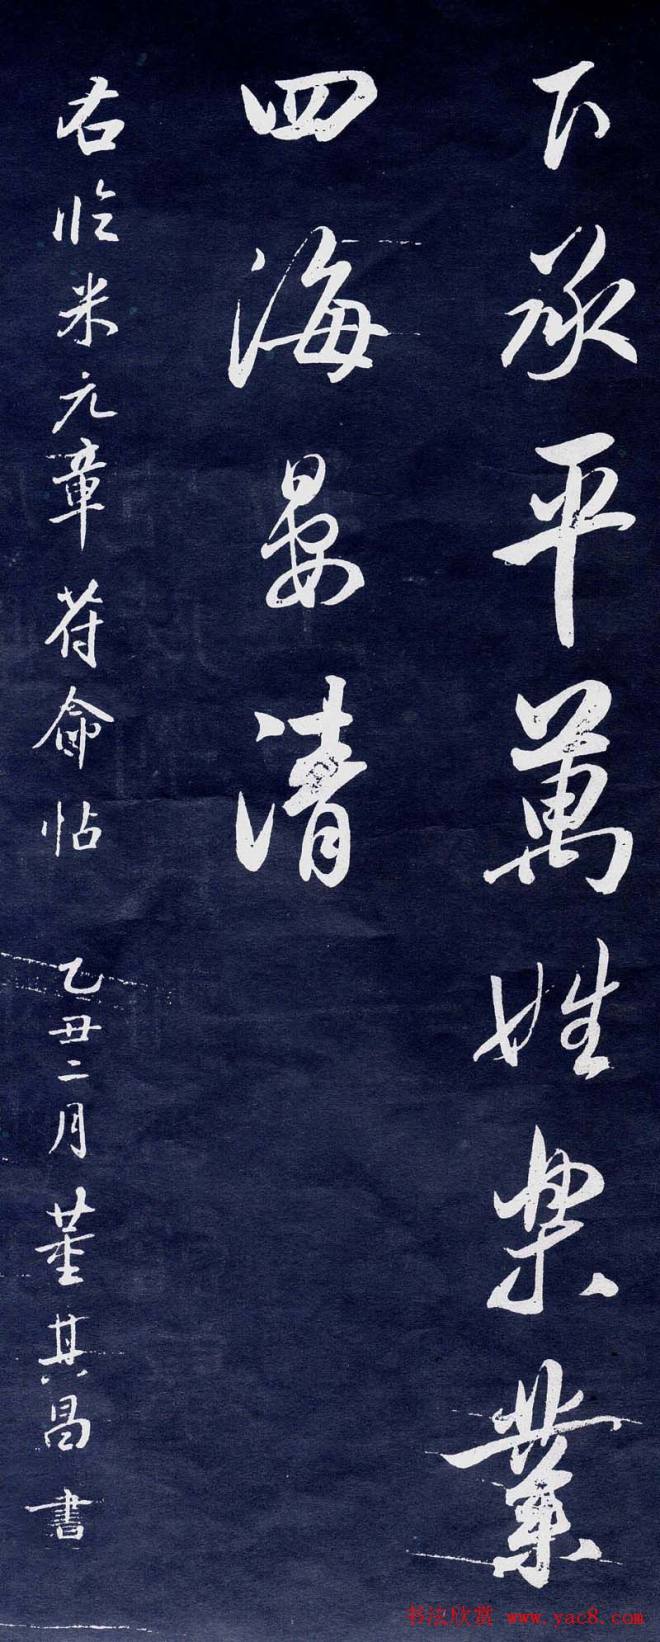 下承平萬姓樂業
四海晏清
右臨米元章符命帖 乙丑二月董其昌書
书法欣赏 www.yac8.com